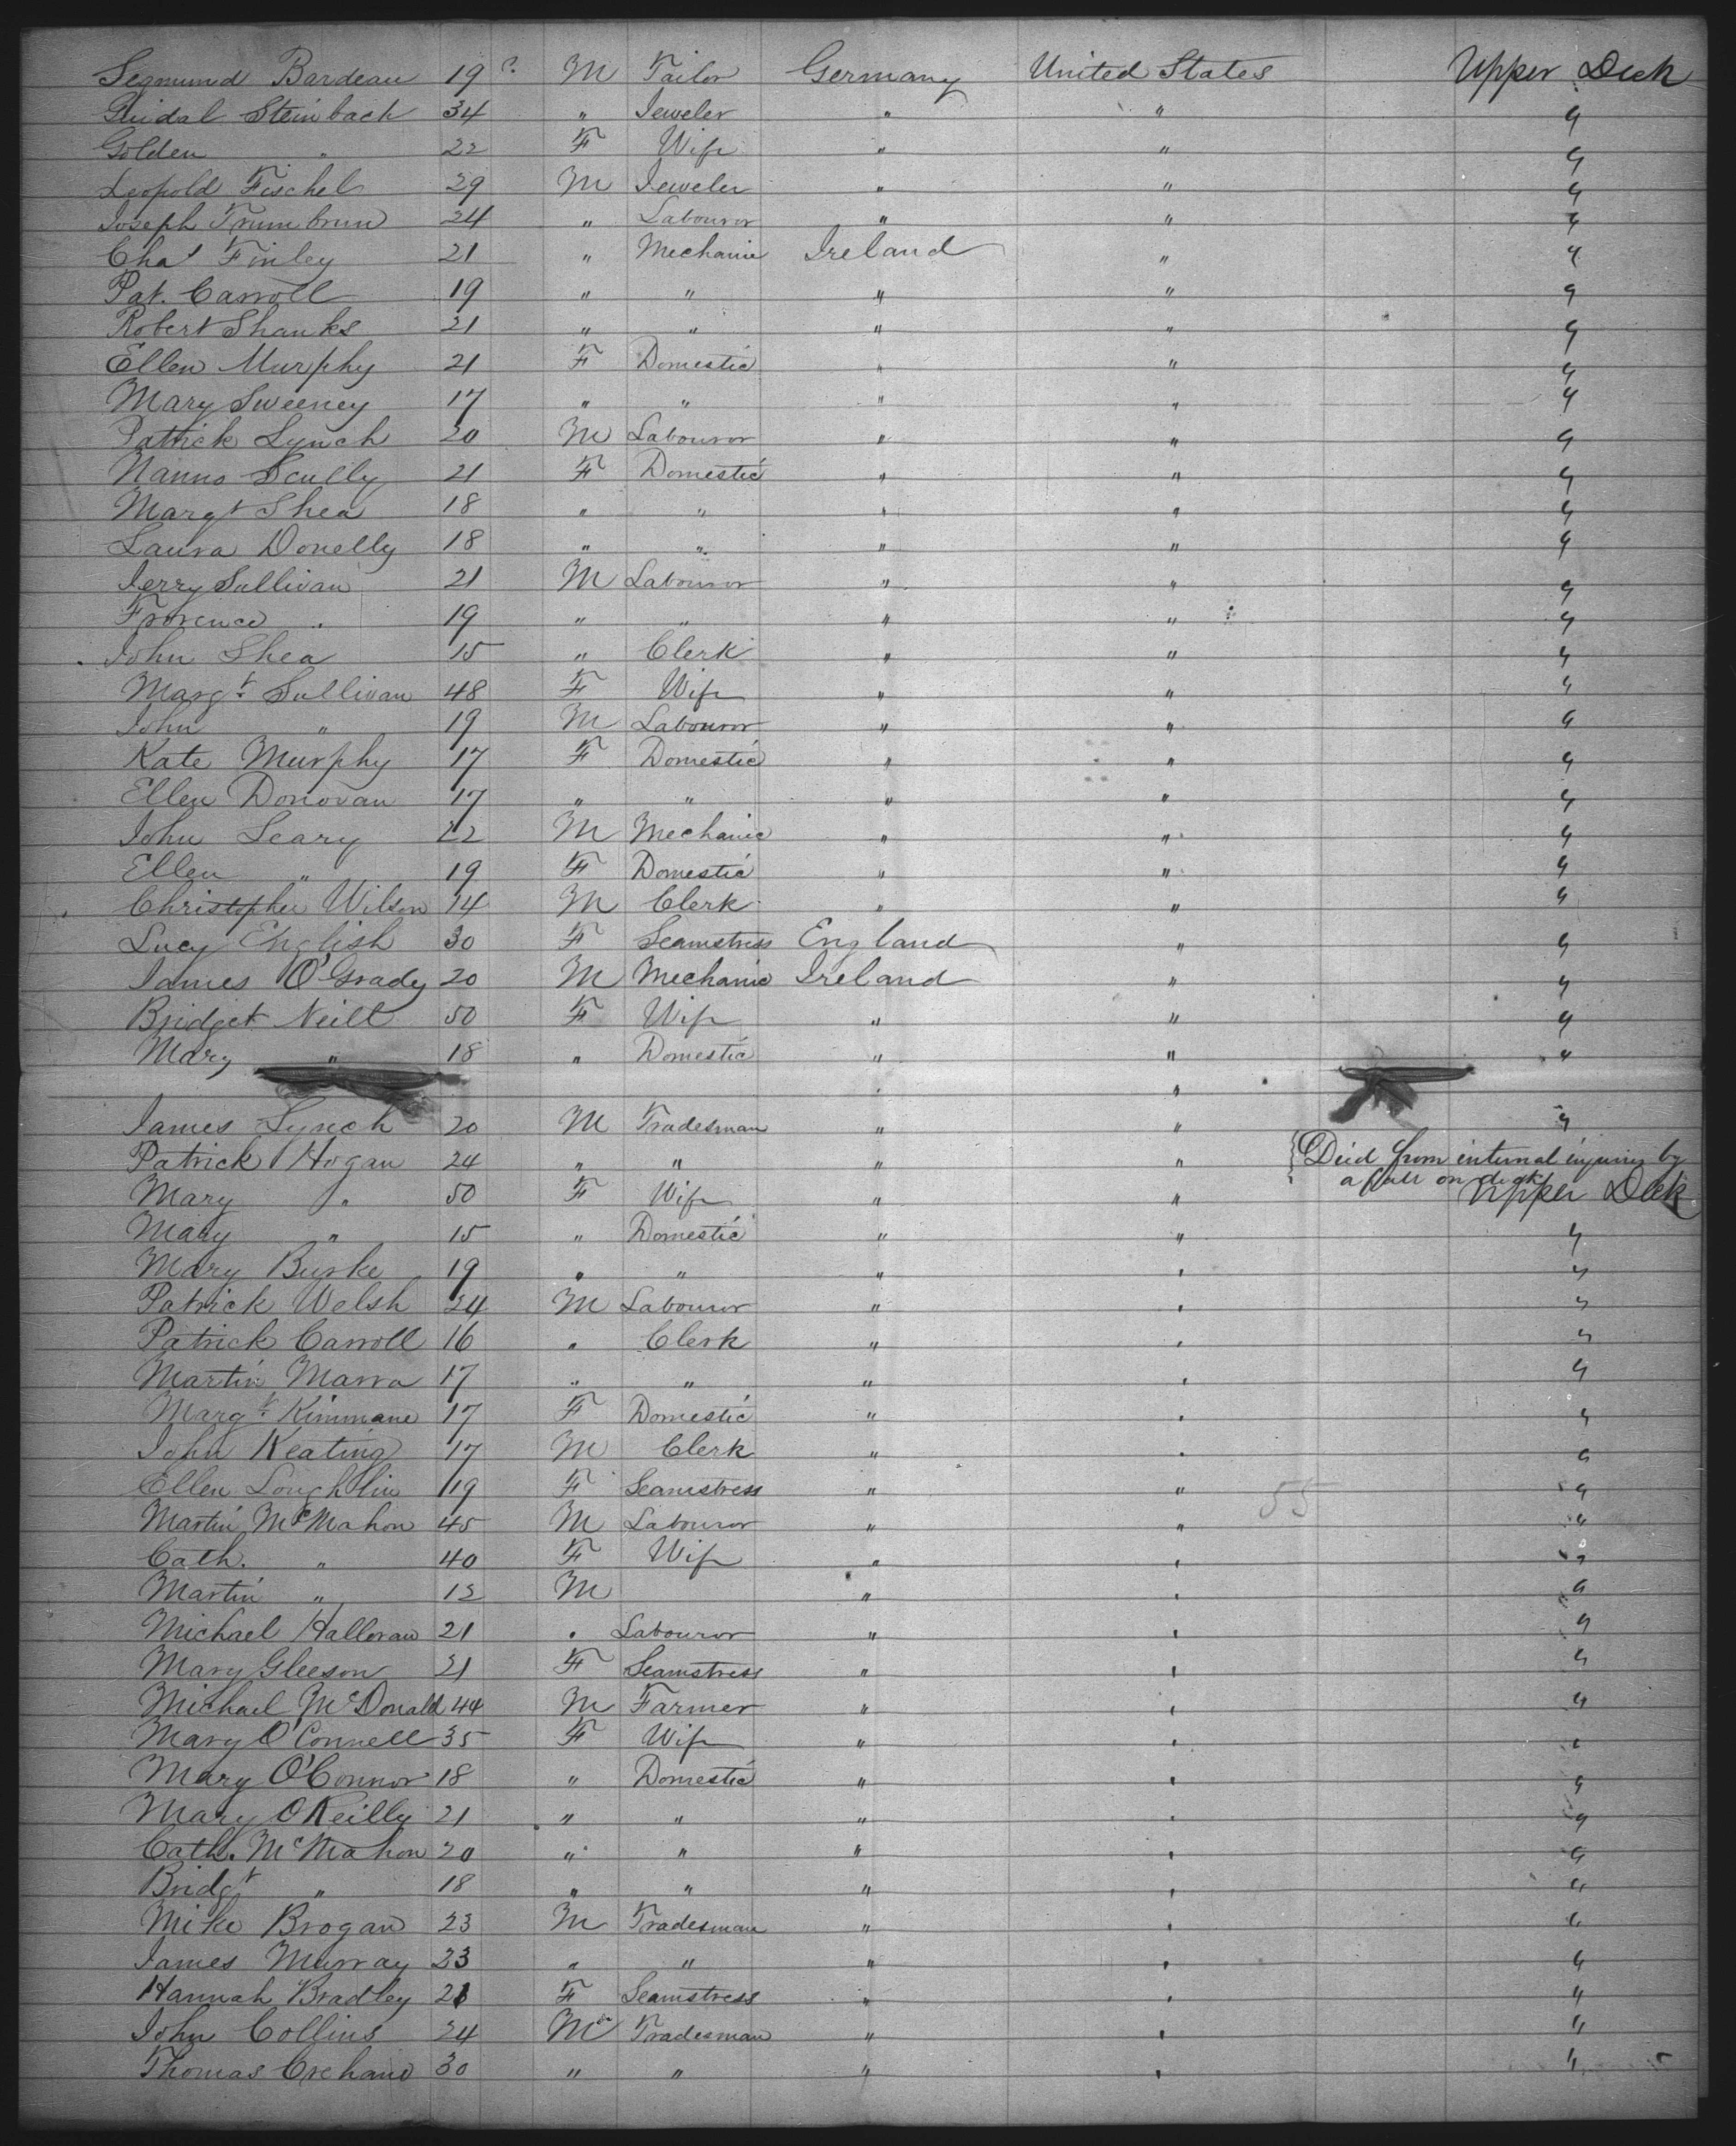 Segmund Bardeau 19 M Tailor Germany United States Upper Deck
Steinbach 34 " Jeweler " " "
Golden " 22 F Wife " " "
Leopold Fischel 29 M Jeweler " " "
Joseph Trumbrun 24 " Labouror " " "
Chas Finley 21 " Mechanic Ireland " "
Pat. Carroll 19 " " " " "
Robert Shanks 21 " " " " "
Ellen Murphy 21 F Domestic " " "
Mary Sweeney 17 " " " " "
Patrick Lynch 20 M Labouror " " "
Nanno Scully 21 F Domestic " " "
Margt Shea 18 " " " " "
Laura Donelly 18 " " " " "
Jerry Sullivan 21 M Labouror " " "
Florence " 19 " " " " "
John Shea 15 " Clerk " " "
Margt. Sullivan 48 F Wife " " "
John " 19 M Labouror " " "
Kate Murphy 17 F Domestic " " "
Ellen Donovan 17 " " " " "
John Leary 22 M Mechanic " " "
Ellen " 19 F Domestic " " "
Christopher Wilson 14 M Clerk " " "
Lucy English 30 F Seamstress England " "
James O'Grady 20 M Mechanic Ireland " "
Bridget Neill 50 F Wife " " "
Mary " 18 " Domestic " " "
" "
James Lynch 20 M Tradesman " " "
Patrick Hogan 24 " " " " Died from internal injury by
a fall on deck
Mary " 50 F Wife " " Upper Deck
Mary " 15 " Domestic " " "
Mary Burke 19 " " " " "
Patrick Welsh 24 M Labouror " " "
Patrick Carroll 16 " Clerk " " "
Martin Marra 17 " " " " "
Margt. Kinmane 17 F Domestic " " "
John Keating 17 M Clerk " " "
Ellen Loughlin 19 F Seamstress " " 55 "
Martin McMahon 45 M Labouror " " "
Cath. " 40 F Wife " " "
Martin " 12 M " " "
Michael Halloran 21 " Labouror " " "
Mary Gleeson 21 F Seamstress " " "
Michael McDonald 44 M Farmer " " "
Mary O'Connell 35 F Wife " " "
Mary O'Connor 18 " Domestic " " "
Mary O'Reilly 21 " " " " "
Cath. McMahon 20 " " " " "
Bridgt " 18 " " " " "
Mike Brogan 23 M Tradesman " " "
James Murray 23 " " " " "
Hannah Bradley 21 F Seamstress " " "
John Collins 24 M Tradesman " " "
Thomas Crehand 30 " " " " "